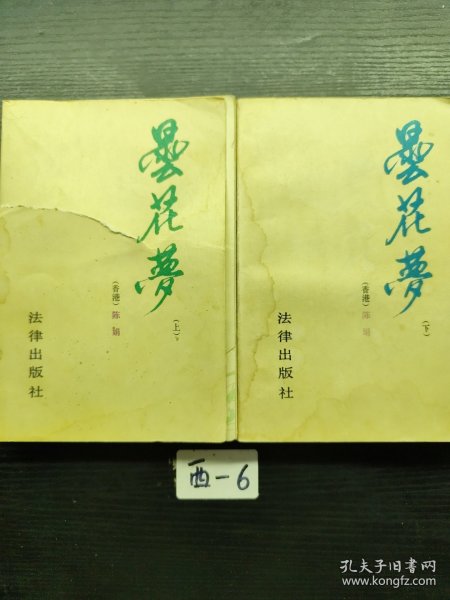 曇花夢
(上)
(香港) 陈娟
法律出版社
曇花夢
(下)
(香港) 陈娟
法律出版社
西-6
孔夫子旧书网
www.kongfz.com